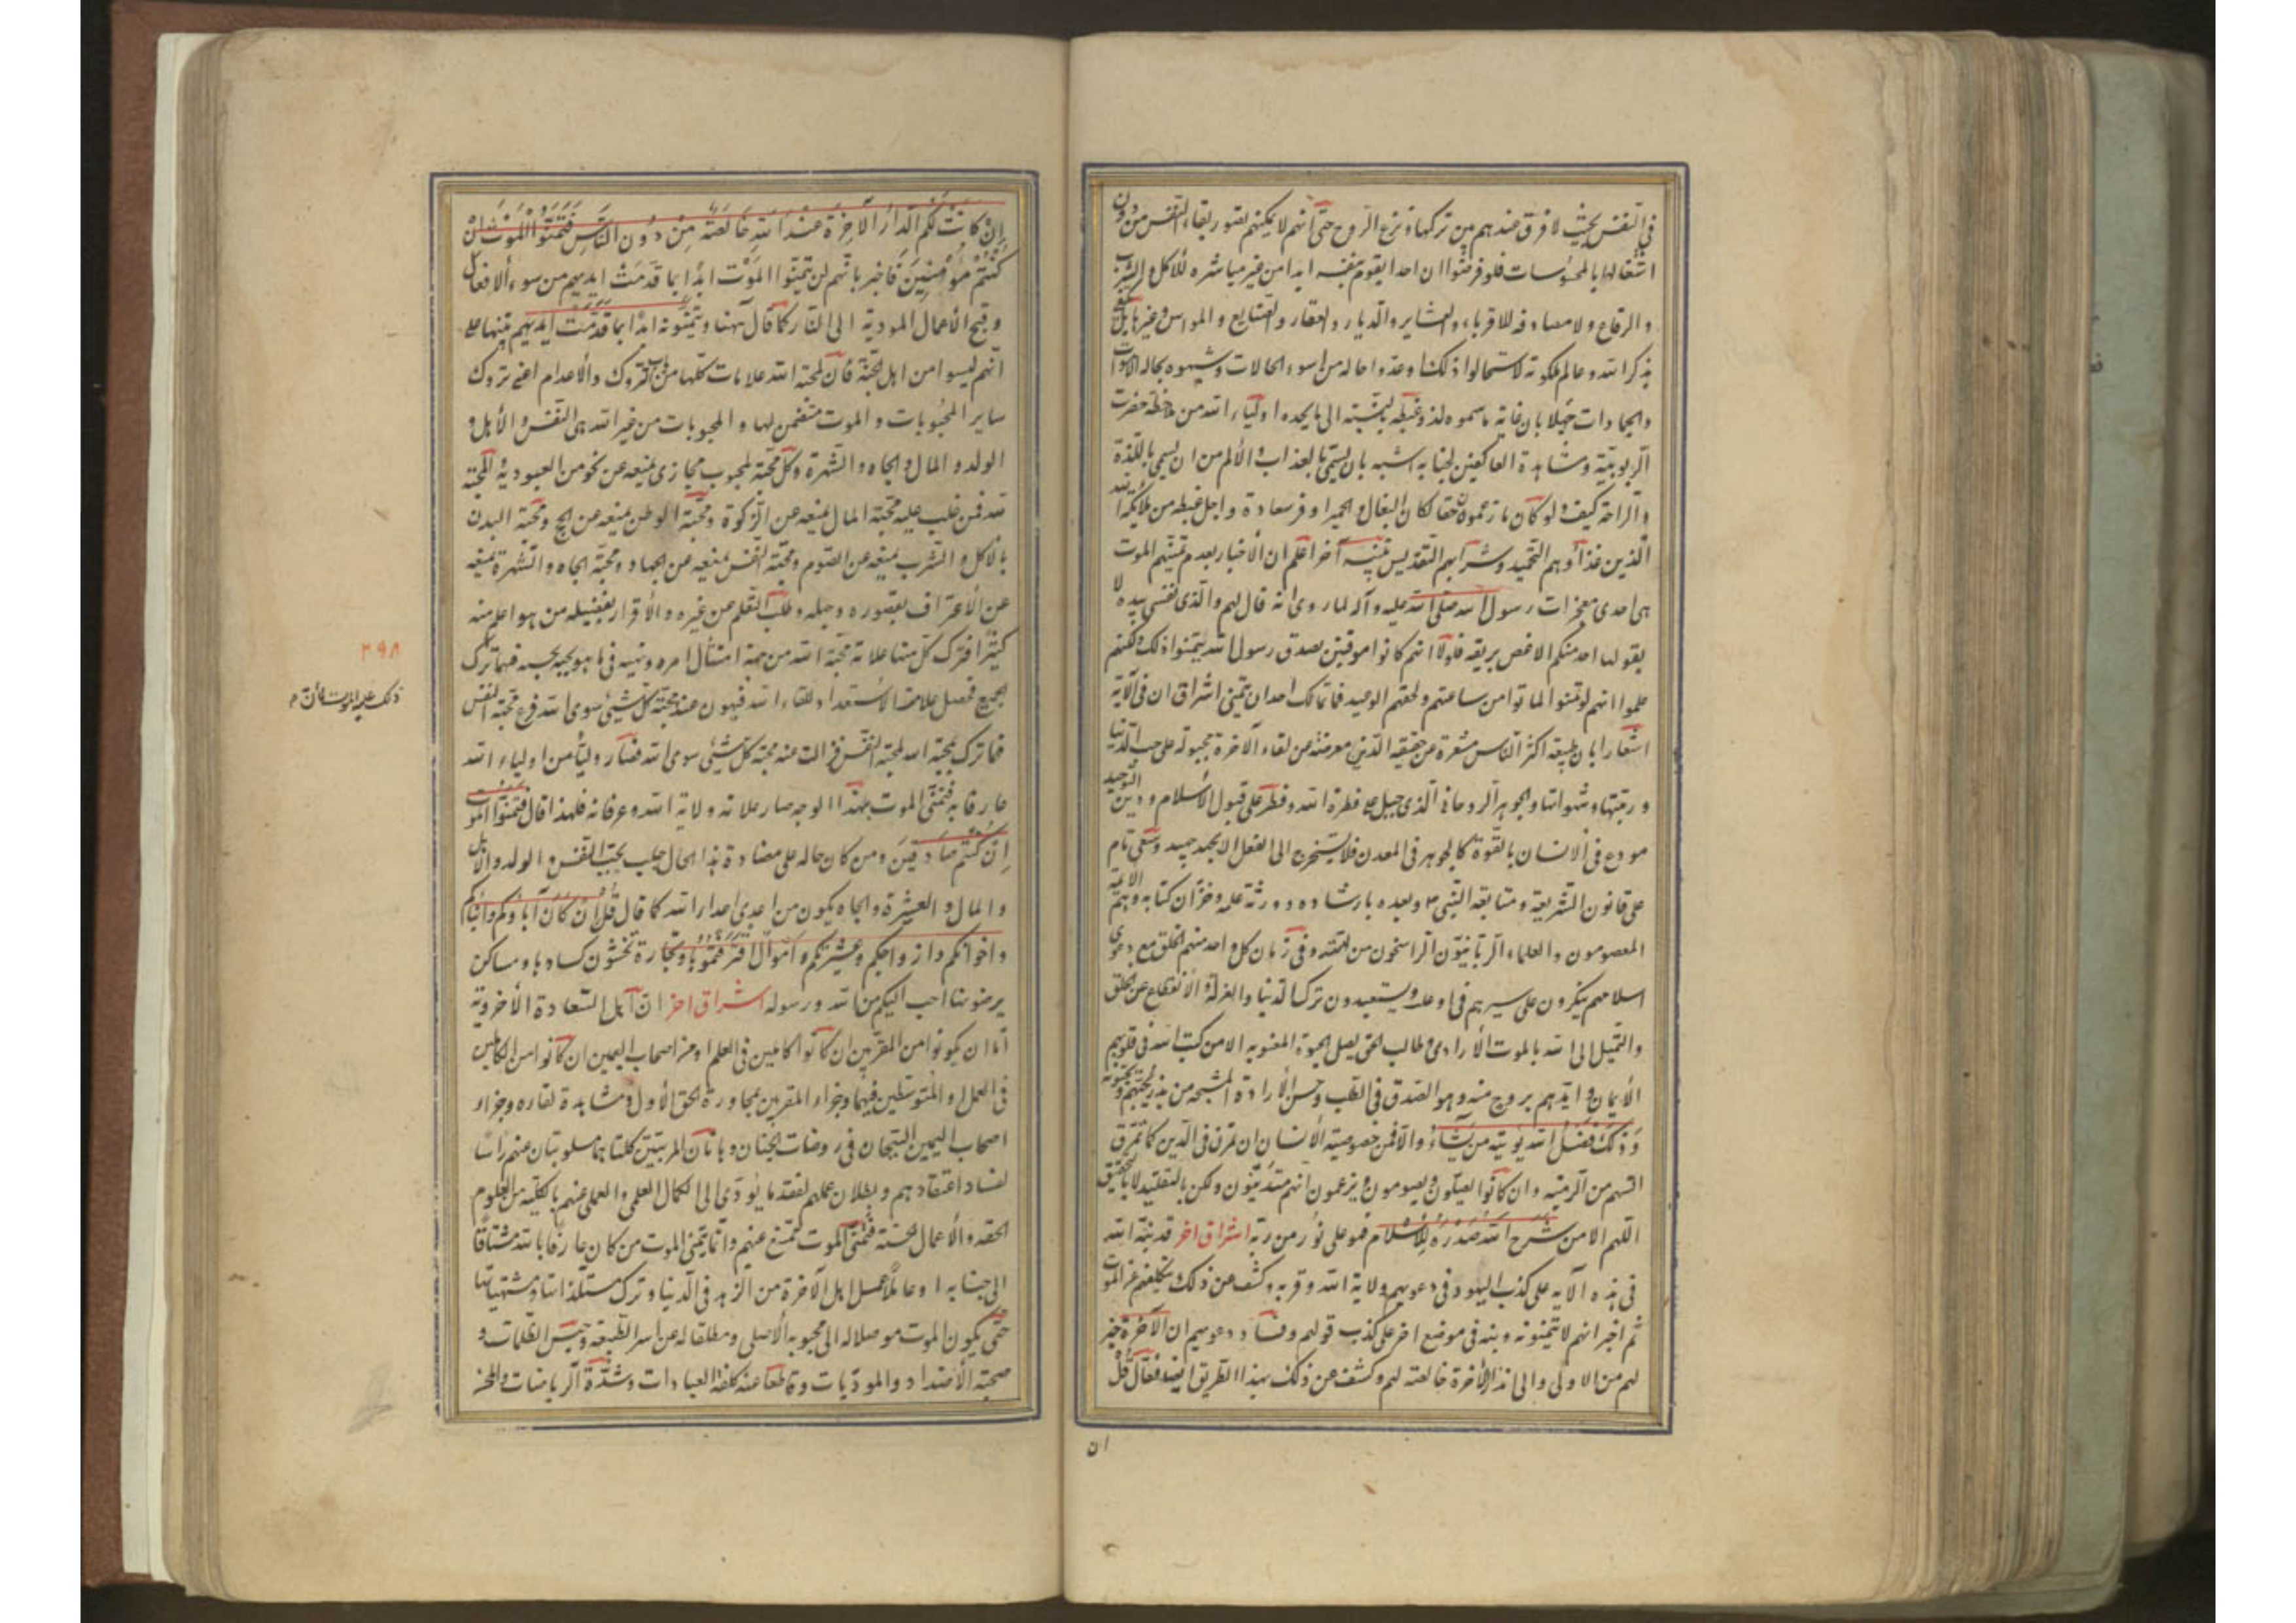 في النفس بحيث لا فرق عندهم بين تركها ونزع الروح حتى انهم لا يمكنهم تصور بقاء النفس من دون
اشتغالها بالمحسوسات فلو فرضوا ان احدا يقوم بنفسه ابدا من غير مباشره للاكل والشرب
والوقاع ولا مصادفه للاقرباء والعشاير والديار والعقار والضايع والمواس وغيرها بل
بذكر الله وعالم ملكوته لاستحالوا ذلك وعدوا حاله من اسوء الحالات وشبهوه بحاله الاموات
والجمادات جهلا بان غاية ما سموه لذه وغبطه بالنسبه الى ما يجده اولياء الله من ملاحظه حضرت
الربوبيّة ومشاهدة العاكفين لجنابه اشبه بان يسمّى بالعذاب والألم من ان يسمى باللذة
والراحة كيف ولو كان ما زعموه حقا لكان البغال والحمير اوفر سعادة واجل غبطه من ملائكة الله
الذين غذاؤهم التحميد وشرابهم التقديس تنبيه آخر اعلم ان الأخبار بعدم تمنيهم الموت
هى احدى معجزات رسول الله صلى الله عليه وآله لما روى انه قال لهم والذى نفسى بيده لا
يقولها احد منكم الا غص بريقه فلولا انهم كانوا موقنين بصدق رسول الله لتمنوا ذلك ولكنهم
علموا انهم لو تمنوا لماتوا من ساعتهم ولحقهم الوعيد فما تمالك احد ان يتمنى اشراق ان فى الآية
اشعارا بان طبيعة اكثر الناس مشعرة عن حقيقه الدين معرضه عن لقاء الآخرة مجبولة على حب الدنيا
وزينتها وشهواتها والجوهر الروحانى الذى جبل على فطرة الله وفطر على قبول الأسلام ودين التوحيد
مودع فى الانسان بالقوة كالجوهر فى المعدن فلا يستخرج الى الفعل الا بجهد جهيد وسعى تام
على قانون الشريعة ومتابعة النبى ص وبعده بارشاده ورثة علمه وخزان كتابه وهم الائمة
المعصومون والعلماء الربانيون الراسخون من بعده وفى زمان كل واحد منهم الخلق مع دعوى
اسلامهم ينكرون على سيرهم فى اوعد ويستبعدون ترك الدنيا والعزلة والانقطاع عن الخلق
والتبتل الى الله بالموت الأرادى وطالب الحق يصل الحيوة المعنويه الا من كتب الله فى قلوبهم
الأيمان وايدهم بروح منه وهو الصدق فى الطلب وحسن الأرادة من بذر يحبهم ويحبونه
وذلك فضل الله يؤتيه من يشاء والا فمن خصوصية الأنسان ان يمرق فى الدين كما تمرق
السهم من الرميه وان كانوا يصلون ويصومون ويزعمون انهم متديّنون ولكن بالتقليد لا بالتحقيق
اللهم الا من شرح الله صدره للاسلام فهو على نور من ربه اشراق اخر قد نبّه الله
فى هذه الآيه على كذب اليهود فى دعويهم ولاية الله وقربه وكشف عن ذلك بتكليفهم تمنى الموت
ثم اخبر انهم لا يتمنونه ونبه فى موضع اخر على كذب قولهم وفساد دعويهم ان الآخرة خير
لهم من الاولى والى ان الآخرة خالصه لهم وكشف عن ذلك بهذا الطريق ايضا فقال قل
ان
إن كانت لكم الدار الآخرة عند الله خالصة من دون الناس فتمنوا الموت إن
كنتم مؤمنين فاخبر بانهم لن يتمنوا الموت ابدا بما قدمت ايديهم من سوء الافعال
وقبح الأعمال المودية الى النار كما قال ههنا ولا يتمنونه ابدا بما قدمت ايديهم تنبها على
انهم ليسوا من اهل المحبّة فان لمحبّة الله علامات كلها من باب التروك والأعدام اعنى تروك
ساير المحبوبات والموت متضمن لها والمحبوبات من غير الله هى النفس والأهل و
الولد والمال والجاه والشهرة وكل محبّة لمحبوب مجازى يمنعه عن نحو من العبودية والمحبّة
لله فمن غلب عليه محبّة المال يمنعه عن الزكوة ومحبّة الوطن يمنعه عن الحج ومحبّة البدن
بالاكل والشرب يمنعه عن الصوم ومحبّة النفس يمنعه عن الجهاد ومحبّة الجاه والشهرة يمنعه
عن الأعتراف بقصوره وجهله وطلب التعلم من غيره والأقرار بفضيله من هو اعلم منه
كثيرا فترك كل منها علامة محبّة الله من جهة امتثال امره ونهيه فى ما هو يحبه بحسبه فمهما ترك
الجميع فحصل علامة الأستعداد للقاء الله فيهون عنده محبة كل شىء سوى الله فرع محبّة النفس
فما ترك لمحبّة الله لمحبّة النفس فزالت عنه محبة كل شىء سوى الله فصار وليا من اولياء الله
عارفا به فتمنّى الموت بهذا الوجه صار علامة ولاية الله وعرفانه فلهذا قال فتمنوا الموت
إن كنتم صادقين ومن كان حاله على مضادة هذا الحال حليب يحب النفس والولد والأهل
والمال والعشيرة والجاه يكون من اعدى اعداء الله كما قال قل إن كان آباؤكم وأبناؤكم
واخوانكم وازواجكم وعشيرتكم واموال اقترفتموها وتجارة تخشون كسادها ومساكن
ترضونها احب اليكم من الله ورسوله اشراق اخر ان اهل السعادة الأخروية
اما ان يكونوا من المقربين ان كانوا كاملين فى العلم او من اصحاب اليمين ان كانوا من الكاملين
فى العمل او المتوسطين فيهما وجزاء المقربين مجاورة الحق الأول ومشاهدة لقاءه وجزاء
اصحاب اليمين التبجان فى روضات الجنان وهاتان المرتبتين كلتاهما مسلوبتان عنهم راسا
لفساد اعتقادهم وبطلان عملهم لفقد ما يؤدّى الى الكمال العلمى والعملى عنهم بالكليّة من العلوم
الحقه والأعمال الحسنة فتمنّى الموت ممتنع عنهم وانما يتمنى الموت من كان عارفا بالله مشتاقا
الى جنابه او عاملا عمل اهل الآخرة من الزهد فى الدنيا وترك مستلذاتها ومشتهياتها
حتى يكون الموت موصلا له الى محبوبه الأصلى ومطلقا له عن اسر الطبيعه وحبس الظلمات و
صحبة الأضداد والموذيات وقاطعا عنه كلفة العبادات وشدّة الرياضات والمحن
٣٩٨